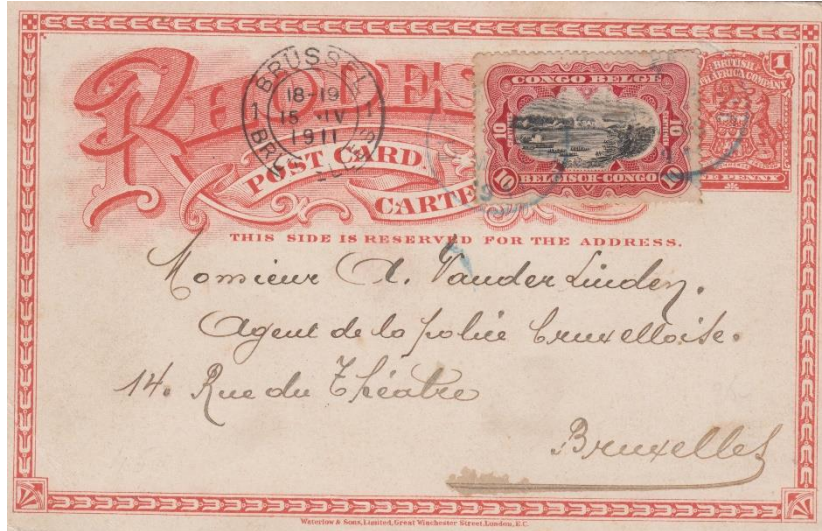 RHODES
POST CARD.
CARTE
BRUSSEL
1 18-19 1
15 IV
1911
CONGO BELGE
10 10
10 BELGISCH-CONGO 10
BRITISH
AFRICA COMPANY
1
NE PENNY
THIS SIDE IS RESERVED FOR THE ADDRESS.
Monsieur A. Vander Linden.
Agent de la police bruxelloise.
14. Rue du Théâtre
Bruxelles
Waterlow & Sons, Limited, Great Winchester Street, London, E.C.